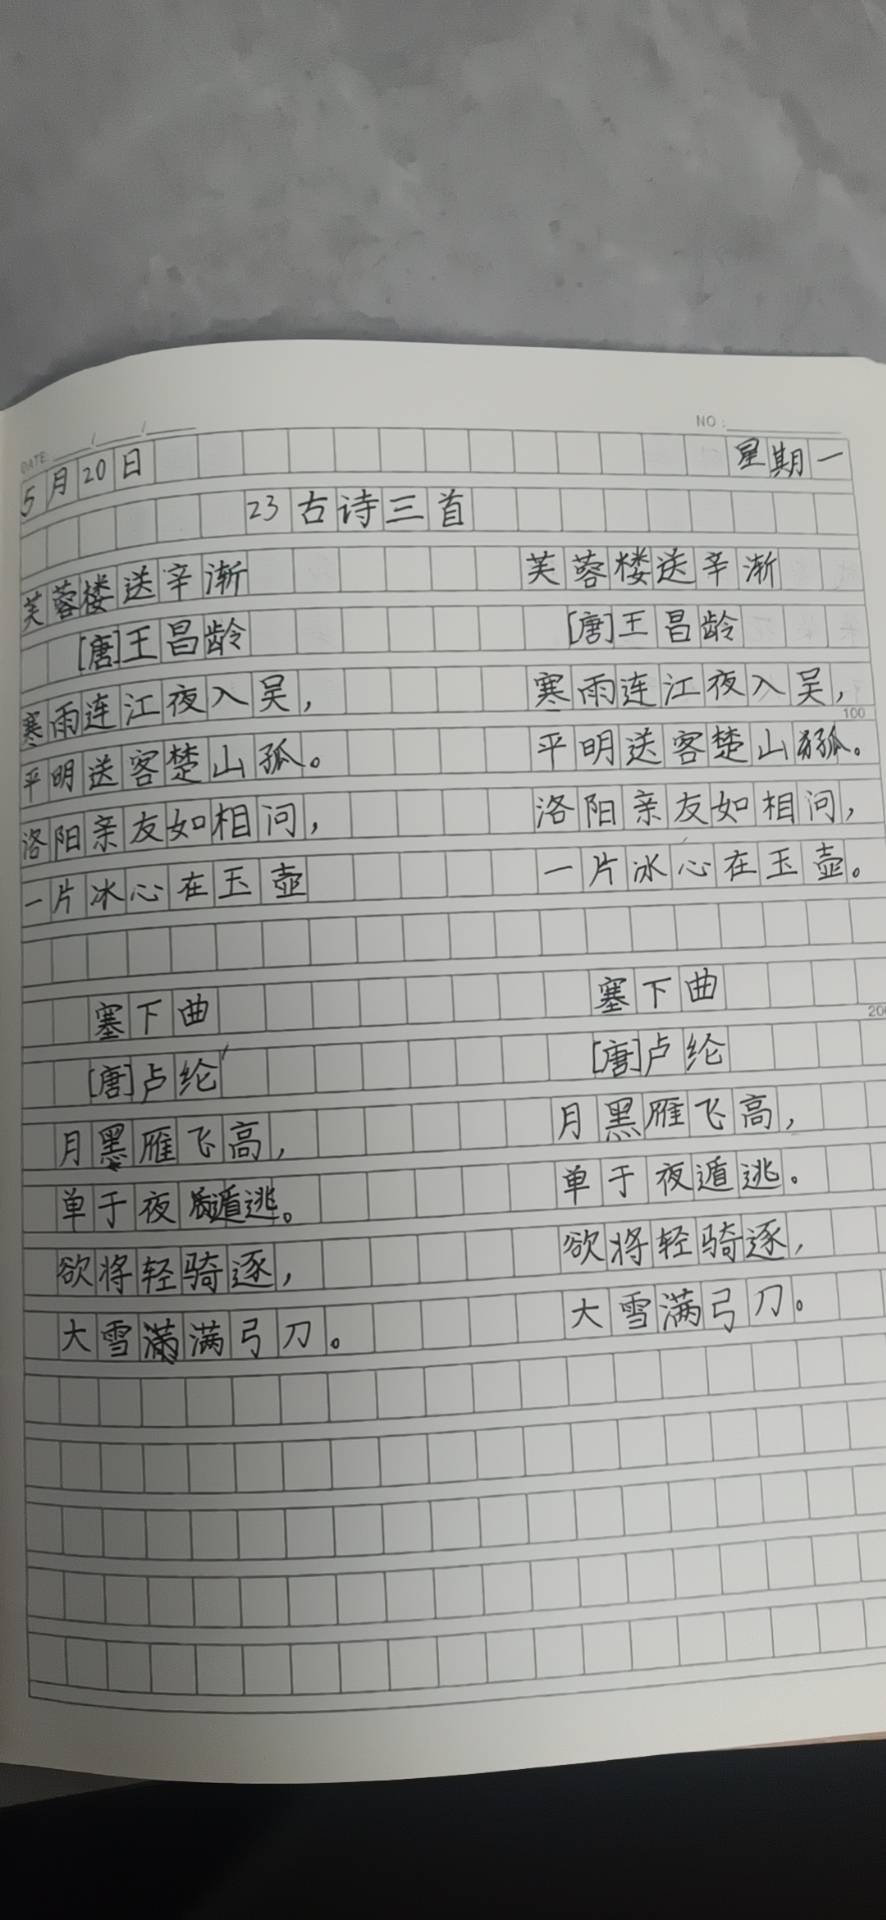 DATE / /
NO：
5月20日 星期一
23古诗三首
芙蓉楼送辛渐 芙蓉楼送辛渐
[唐]王昌龄 [唐]王昌龄
寒雨连江夜入吴， 寒雨连江夜入吴，
100
平明送客楚山孤。 平明送客楚山孤。
洛阳亲友如相问， 洛阳亲友如相问，
一片冰心在玉壶 一片冰心在玉壶。
塞下曲 塞下曲
[唐]卢纶 [唐]卢纶
月黑雁飞高， 月黑雁飞高，
单于夜遁逃。 单于夜遁逃。
欲将轻骑逐， 欲将轻骑逐，
大雪满弓刀。 大雪满弓刀。